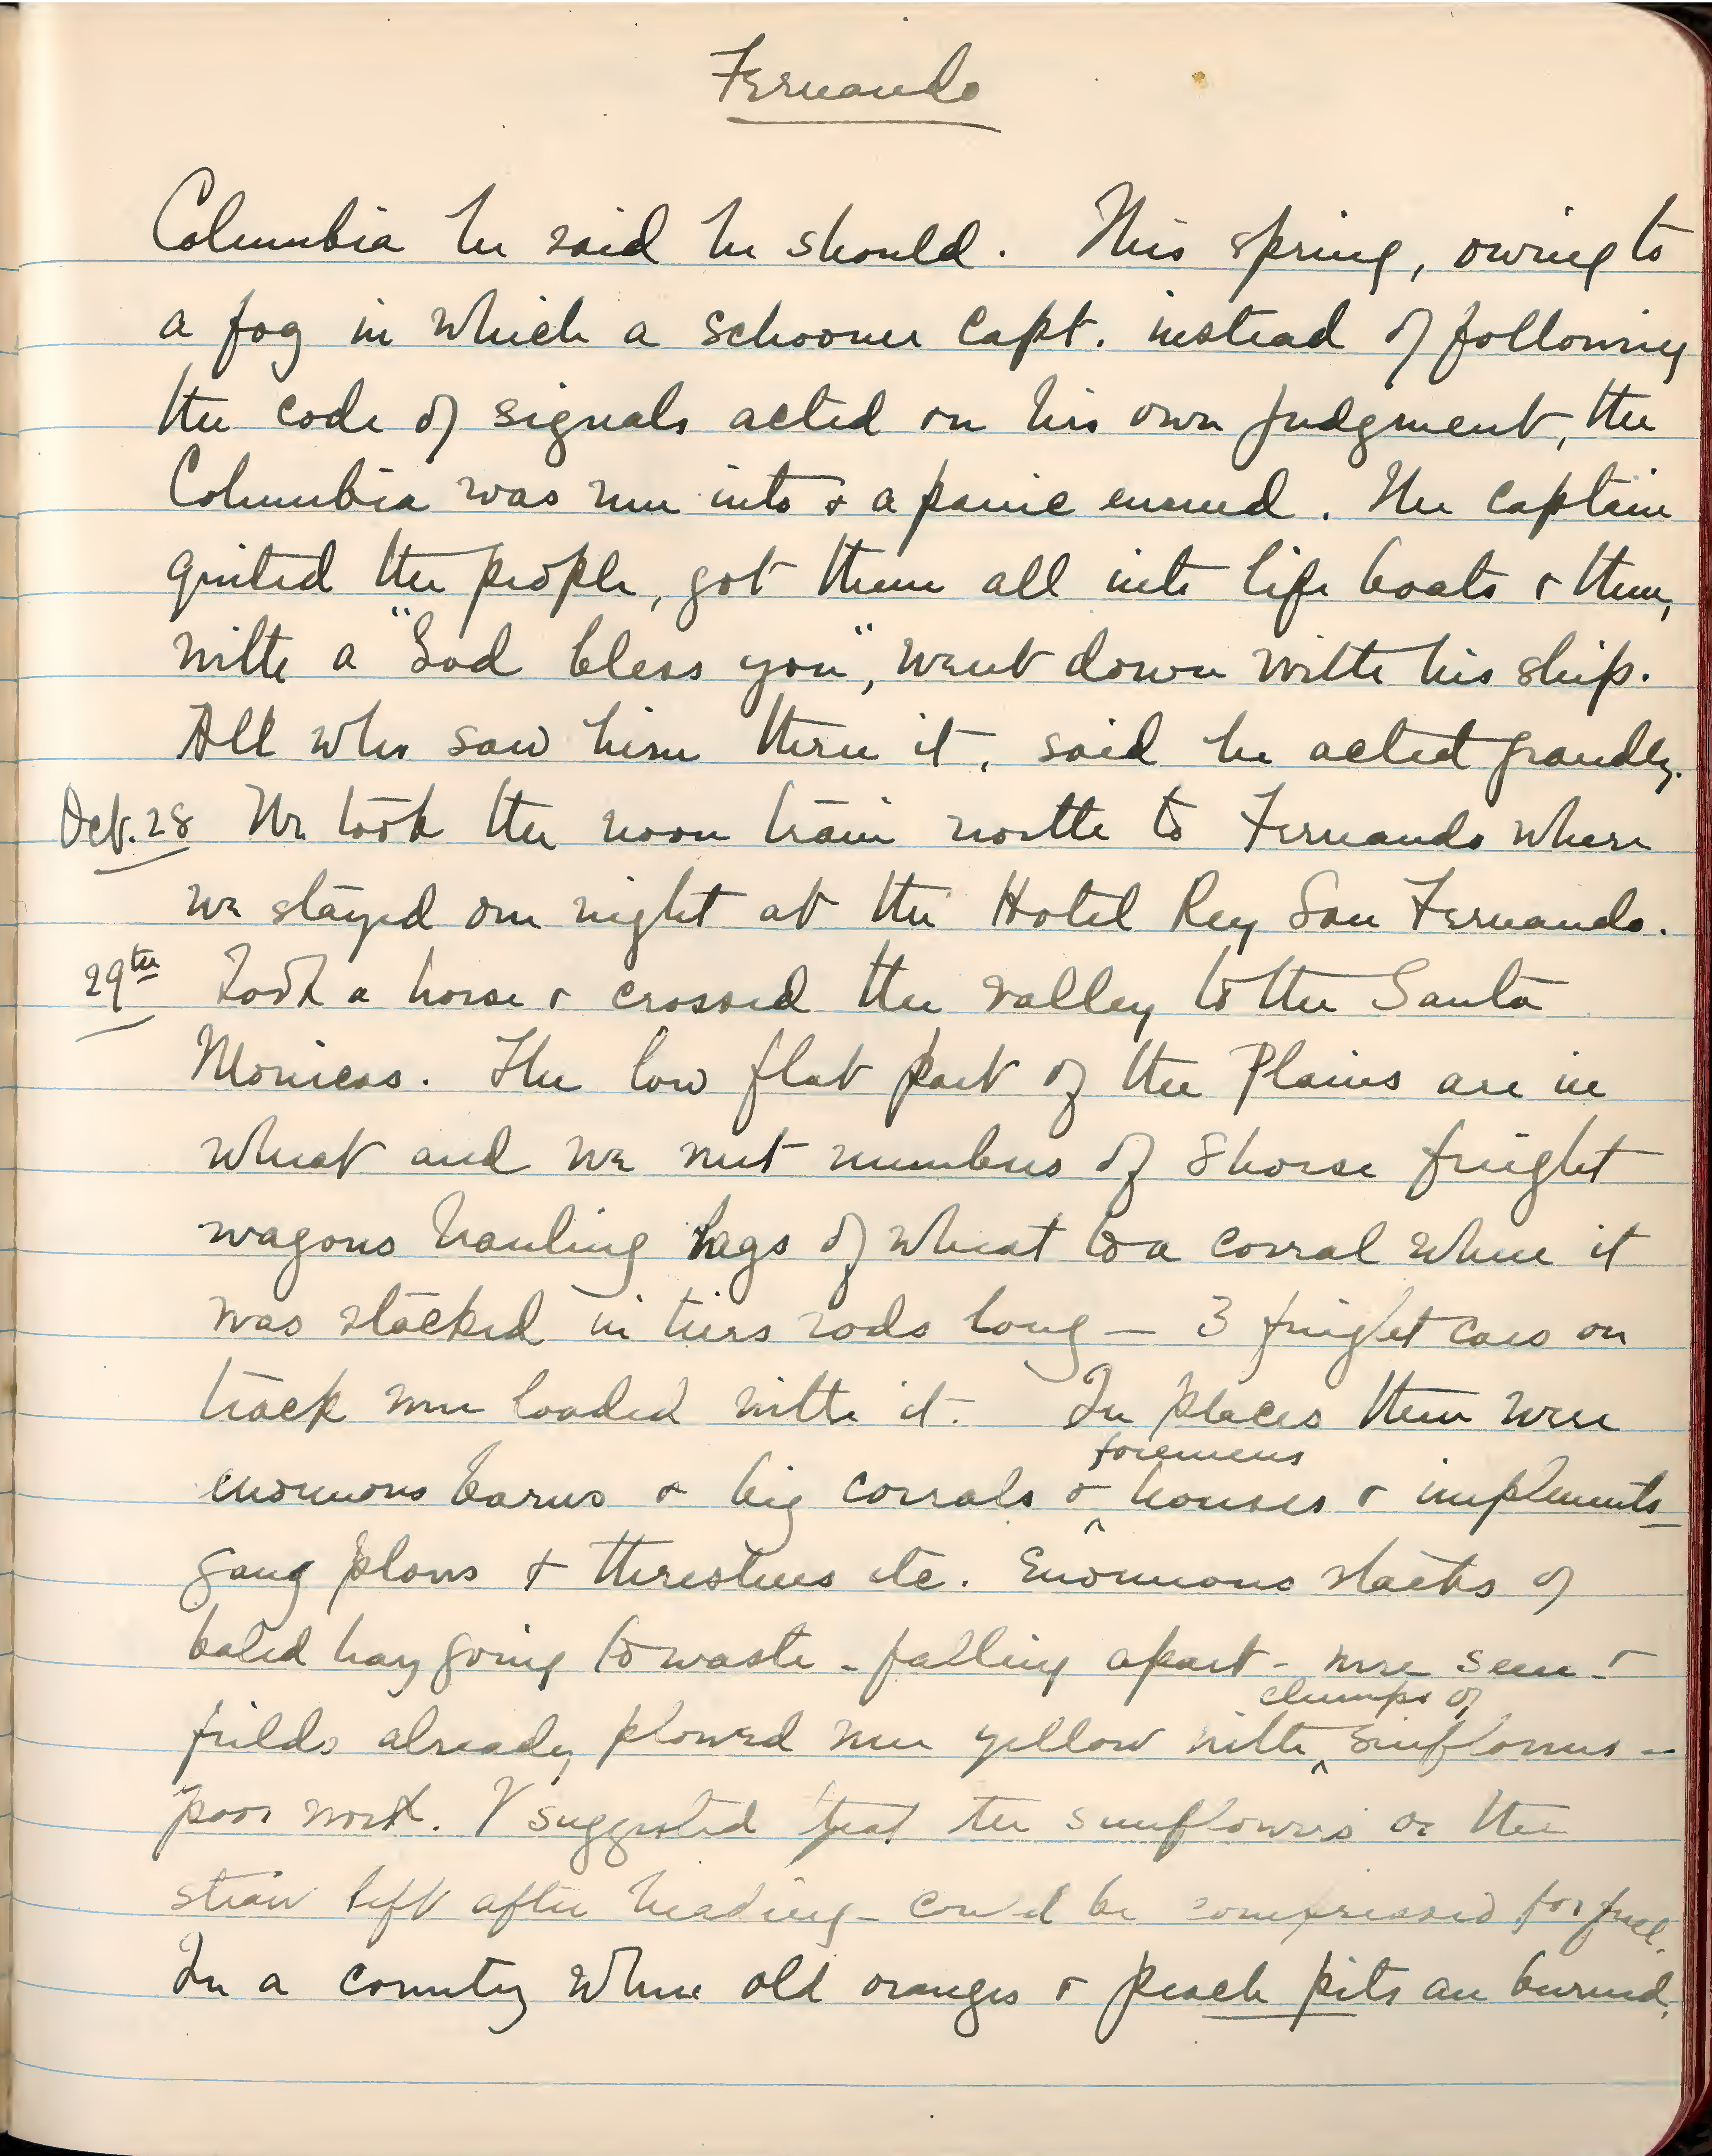 Fernando
Columbia he said he should. This spring, owing to
a fog in which a schooner capt. instead of following
the code of signals acted on his own judgment, the
Columbia was run into & a panic ensued. The captain
quited the people, got them all into life boats & then,
with a "God bless you", went down with his ship.
All who saw him thru it, said he acted grandly.
Oct. 28 We took the noon train north to Fernando where
we stayed one night at the Hotel Rey San Fernando.
29th Took a horse & crossed the valley to the Santa
Monicas. The low flat part of the Plains are in
wheat and we met numbers of 8 horse freight
wagons hauling bags of wheat to a corral where it
was stacked in tiers rods long — 3 freight cars on
track were loaded with it. In places there were
foremens
enormous barns & big corrals & ^ houses & implements -
gang plows & threshers etc. Enormous stacks of
baled hay going to waste - falling apart - were seen - &
clumps of
fields already plowed were yellow with ^ sunflowers --
poor work. I suggested that the sunflowers or the
straw left after heading - could be compressed for fuel.
In a country where old oranges & peach pits are burned,